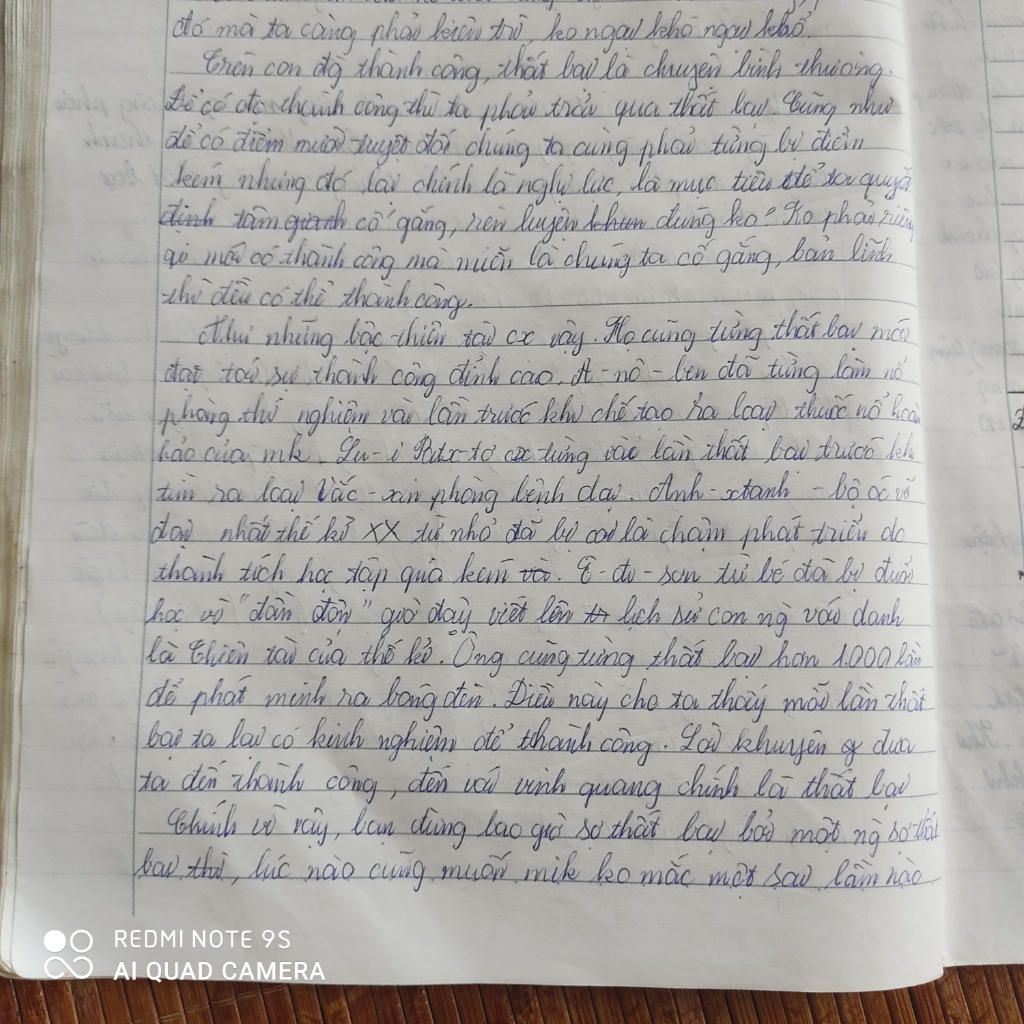 đó mà ta càng phải kiên trì, ko ngại khó ngại khổ.
Trên con đg thành công, thất bại là chuyện bình thường.
Để có đc thành công thì ta phải trải qua thất bại. Cũng như
để có điểm mười tuyệt đối chúng ta cũng phải từng bị điểm
kém nhưng đó lại chính là nghị lực, là mục tiêu để ta quyết
định tâm cố gắng, rèn luyện đúng ko? Ko phải riêng
gì mới có thành công mà miễn là chúng ta cố gắng, bản lĩnh
thì đều có thể thành công.
Như những bậc thiên tài cx vậy. Họ cũng từng thất bại mới
đạt tới sự thành công đỉnh cao. A-nô-ben đã từng làm nổ
phòng thí nghiệm vài lần trước khi chế tạo ra loại thuốc nổ hoàn
hảo của mk. Lu-i Patx-tơ cx từng vài lần thất bại trước khi
tìm ra loại Vắc-xin phòng bệnh dại. Anh-xtanh - bộ óc vĩ
đại nhất thế kỉ XX từ nhỏ đã bị coi là chậm phát triển do
thành tích học tập quá kém. Ê-đi-sơn từ bé đã bị đuổi
học vì "đần độn" giờ đây viết lên lịch sử con ng với danh
là Thiên tài của thế kỉ. Ông cũng từng thất bại hơn 1.000 lần
để phát minh ra bóng đèn. Điều này cho ta thấy mỗi lần thất
bại ta lại có kinh nghiệm để thành công. Lời khuyên đưa
ta đến thành công, đến với vinh quang chính là thất bại
Chính vì vậy, bạn đừng bao giờ sợ thất bại bởi một ng sợ thất
bại thì, lúc nào cũng muốn mik ko mắc một sai lầm nào
REDMI NOTE 9S
AI QUAD CAMERA